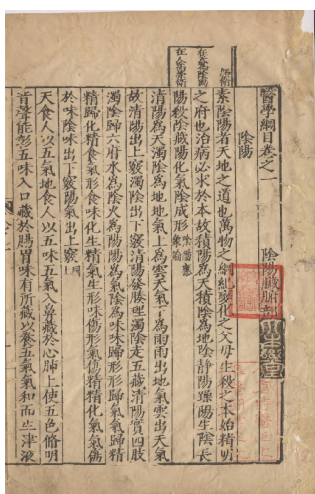 醫學綱目卷之一 陰陽臟腑部
陰陽
素陰陽者天地之道也萬物之綱紀變化之父母生殺之本始神明
之府也治病必求於本故積陽爲天積陰爲地陰靜陽躁陽生陰長
陽殺陰藏陽化氣陰成形陰陽應象論
清陽爲天濁陰爲地地氣上爲雲天氣下爲雨雨出地氣雲出天氣
故清陽出上竅濁陰出下竅清陽發腠理濁陰走五藏清陽實四肢
濁陰歸六府水爲陰火爲陽陽爲氣陰爲味味歸形形歸氣氣歸精
精歸化精食氣形食味化生精氣生形味傷形氣傷精精化氣氣傷
於味陰味出下竅陽氣出上竅同上
天食人以五氣地食人以五味五氣入鼻藏於心肺上使五色脩明
音聲能彰五味入口藏於腸胃味有所藏以養五氣氣和而生津液